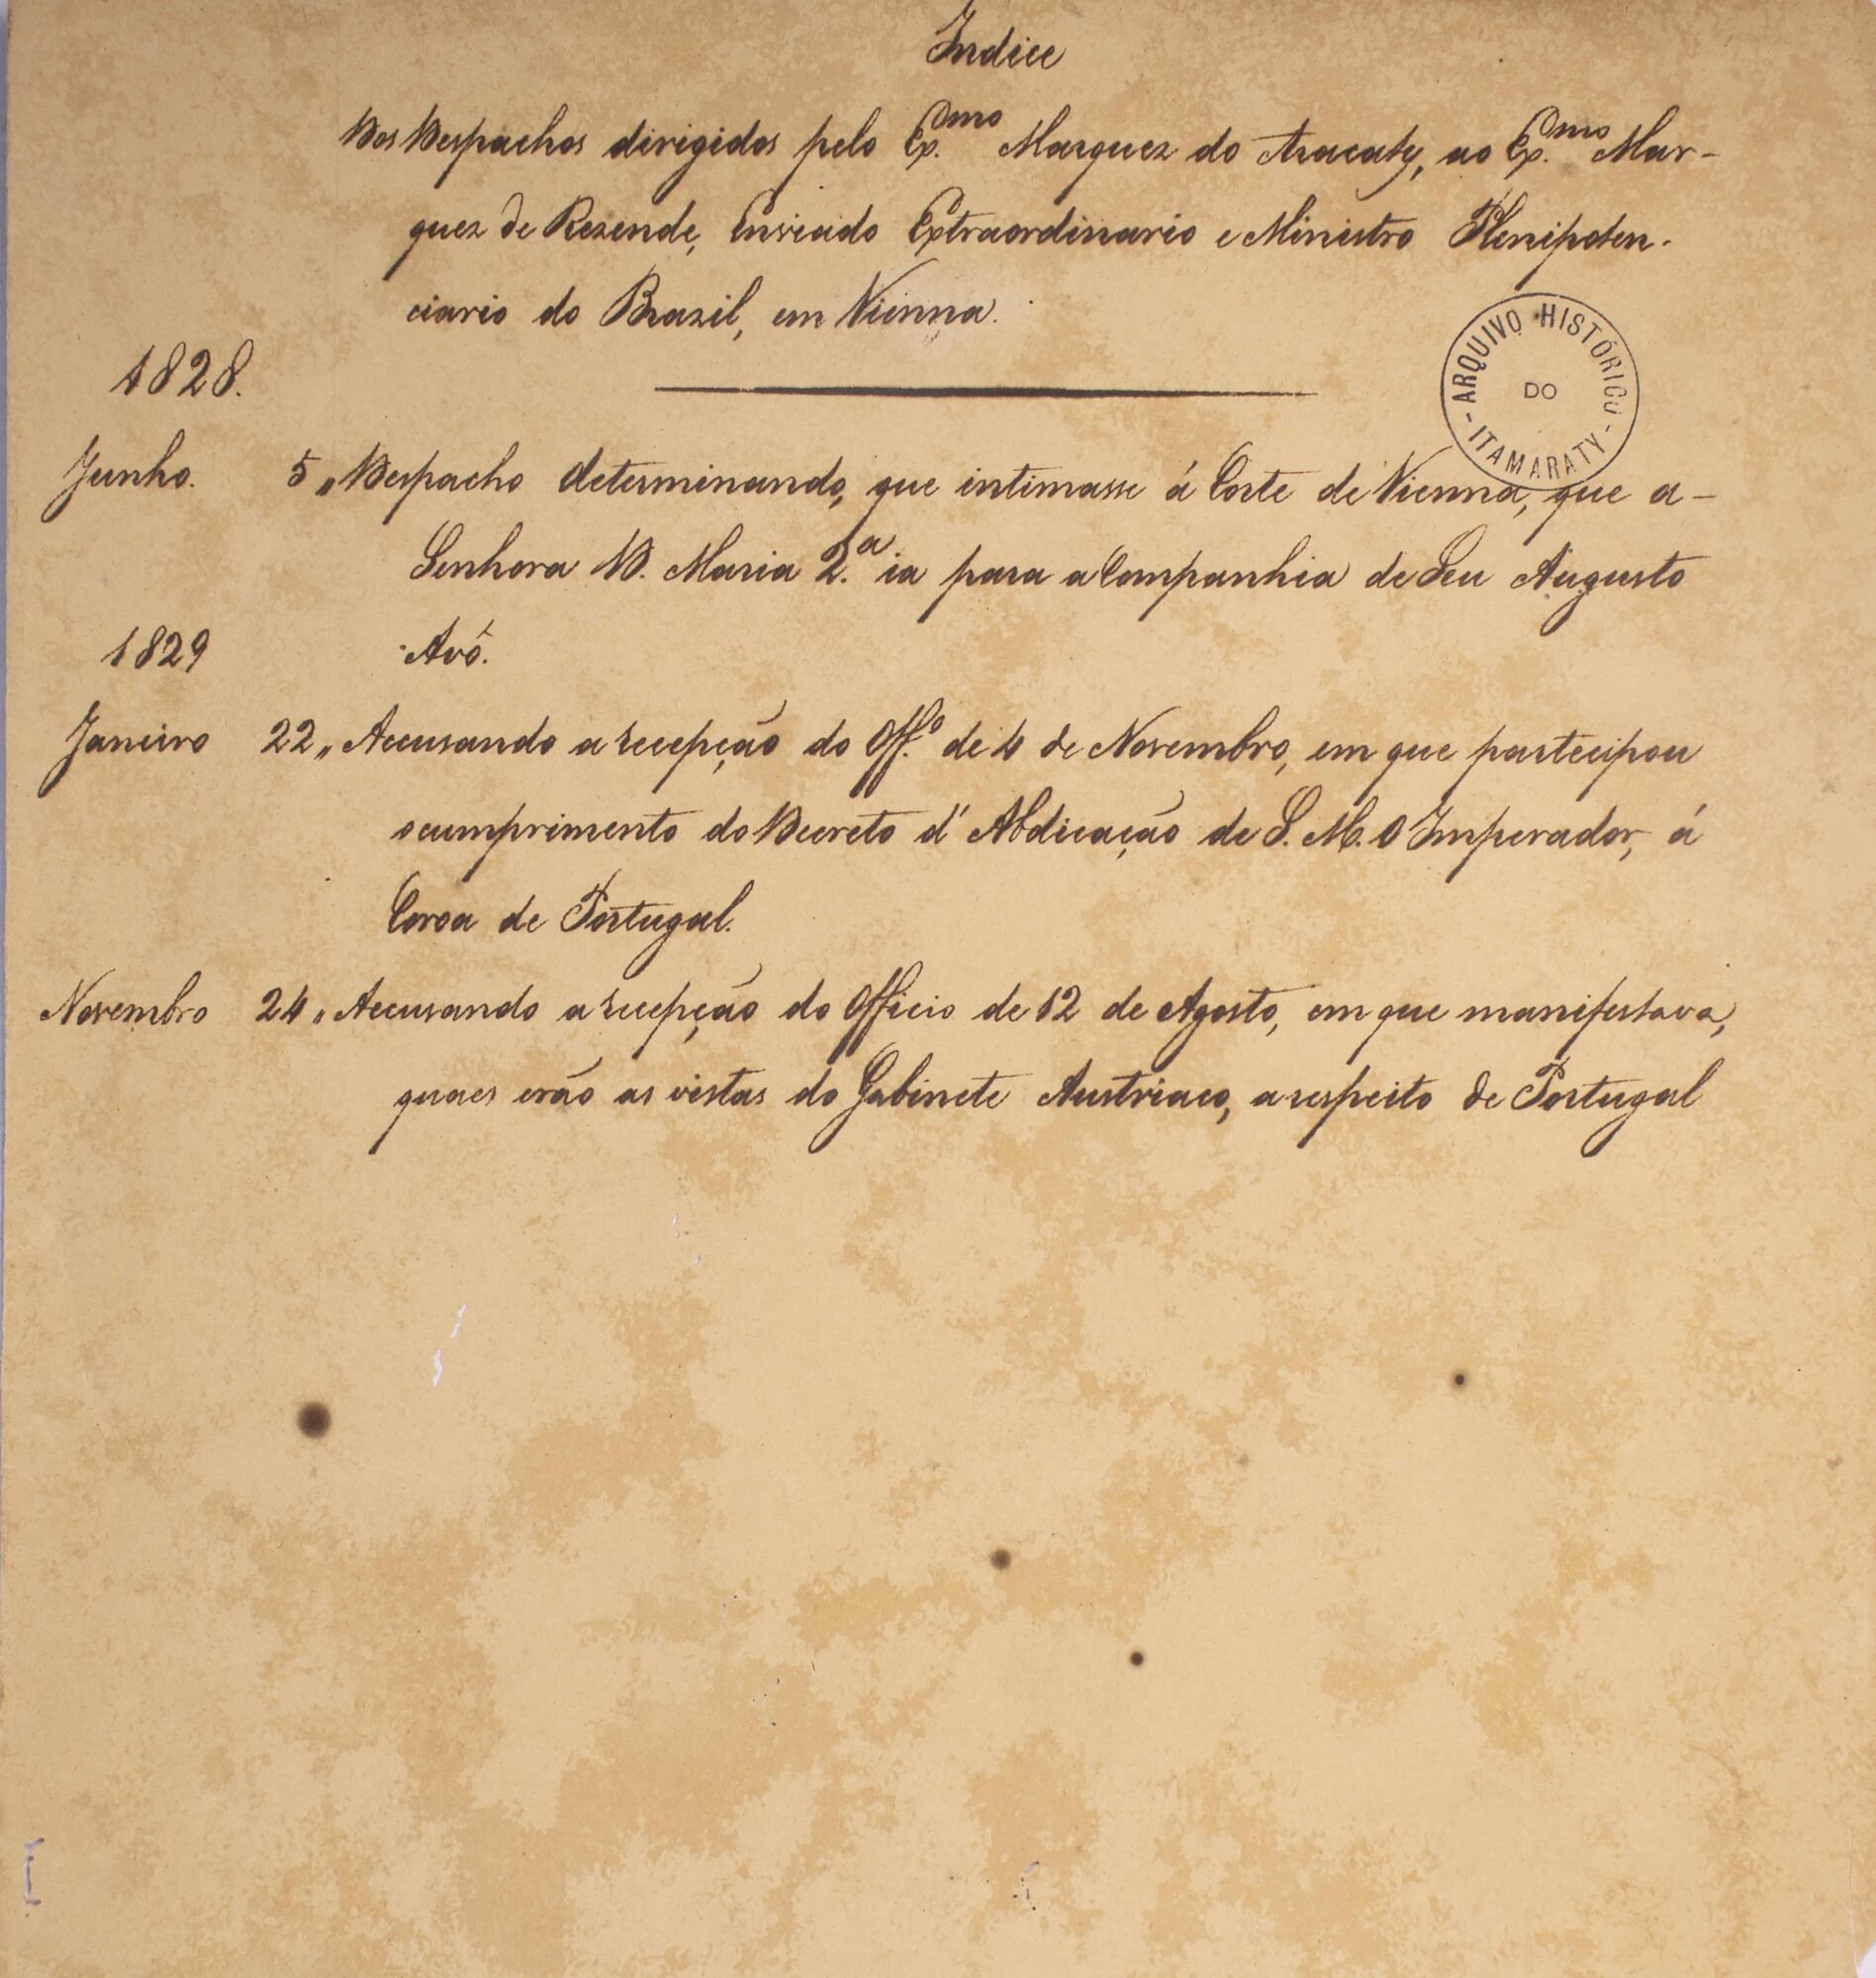 Indice
Dos Despachos dirigidos pelo Ex.mo Marquez do Aracaty, ao Ex.mo Mar-
quez de Rezende, Enviado Extraordinario e Ministro Plenipoten-
ciario do Brazil, em Vienna.
ARQUIVO HISTÓRICO
DO
- ITAMARATY -
1828.
Junho. 5 „ Despacho determinando, que intimasse á Corte de Vienna, que a-
Senhora D. Maria 2.a ia para a Companhia de Seu Augusto
1829 Avô.
Janeiro 22 „ Accusando a recepção do Off.o de 4 de Novembro, em que partecipou
o cumprimento do Decreto d'Abdicação de S. M. O Imperador, á
Coroa de Portugal.
Novembro 24 „ Accusando a recepção do Officio de 12 de Agosto, em que manifestava,
quaes erão as vistas do Gabinete Austriaco, a respeito de Portugal